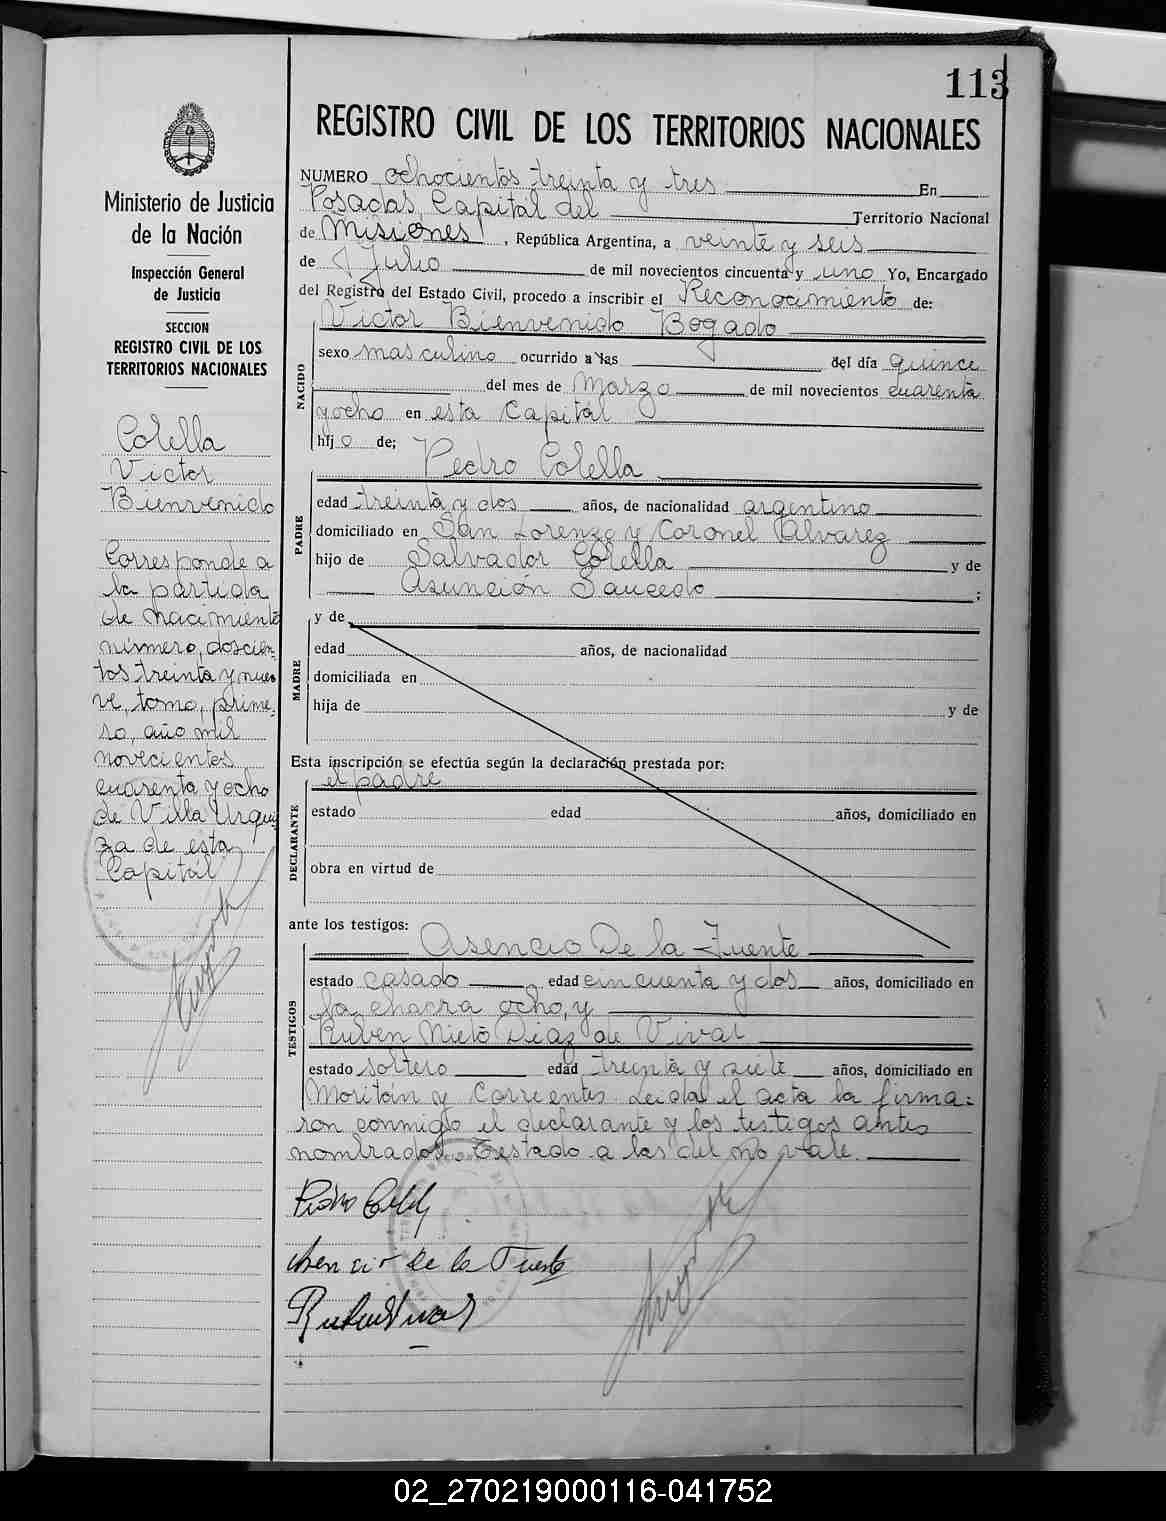 113
REGISTRO CIVIL DE LOS TERRITORIOS NACIONALES
Ministerio de Justicia
de la Nación
Inspección General
de Justicia
SECCION
REGISTRO CIVIL DE LOS
TERRITORIOS NACIONALES
Colella
Victor
Bienvenido
Corresponde a
la partida
de nacimiento
número, doscien
tos treinta y nue
ve, tomo, prime
ro, año mil
novecientos
cuarenta y ocho
de Villa Urqui
za de esta
Capital
NUMERO ochocientos treinta y tres En
Posadas, Capital del Territorio Nacional
de Misiones, República Argentina, a veinte y seis
de Julio de mil novecientos cincuenta y uno Yo, Encargado
del Registro del Estado Civil, procedo a inscribir el Reconocimiento de:
Victor Bienvenido Bogado
NACIDO
sexo masculino ocurrido a las del día quince
del mes de Marzo de mil novecientos cuarenta
y ocho en esta Capital
hijo de;
Pedro Colella
PADRE
edad treinta y dos años, de nacionalidad argentino
domiciliado en San Lorenzo y Coronel Alvarez
hijo de Salvador Colella y de
Asunción Saucedo ;
MADRE
y de
edad años, de nacionalidad
domiciliada en
hija de y de
Esta inscripción se efectúa según la declaración prestada por:
el padre
DECLARANTE
estado edad años, domiciliado en
obra en virtud de
ante los testigos:
Asencio De la Fuente
TESTIGOS
estado casado edad cincuenta y dos años, domiciliado en
la chacra ocho, y
Ruben Nieto Diaz de Vivar
estado soltero edad treinta y siete años, domiciliado en
Moritán y Corrientes. Leida el acta la firma=
ron conmigo el declarante y los testigos antes
nombrados. Testado a las del no vale.
Pedro
Asencio de la Fuente
02_270219000116-041752